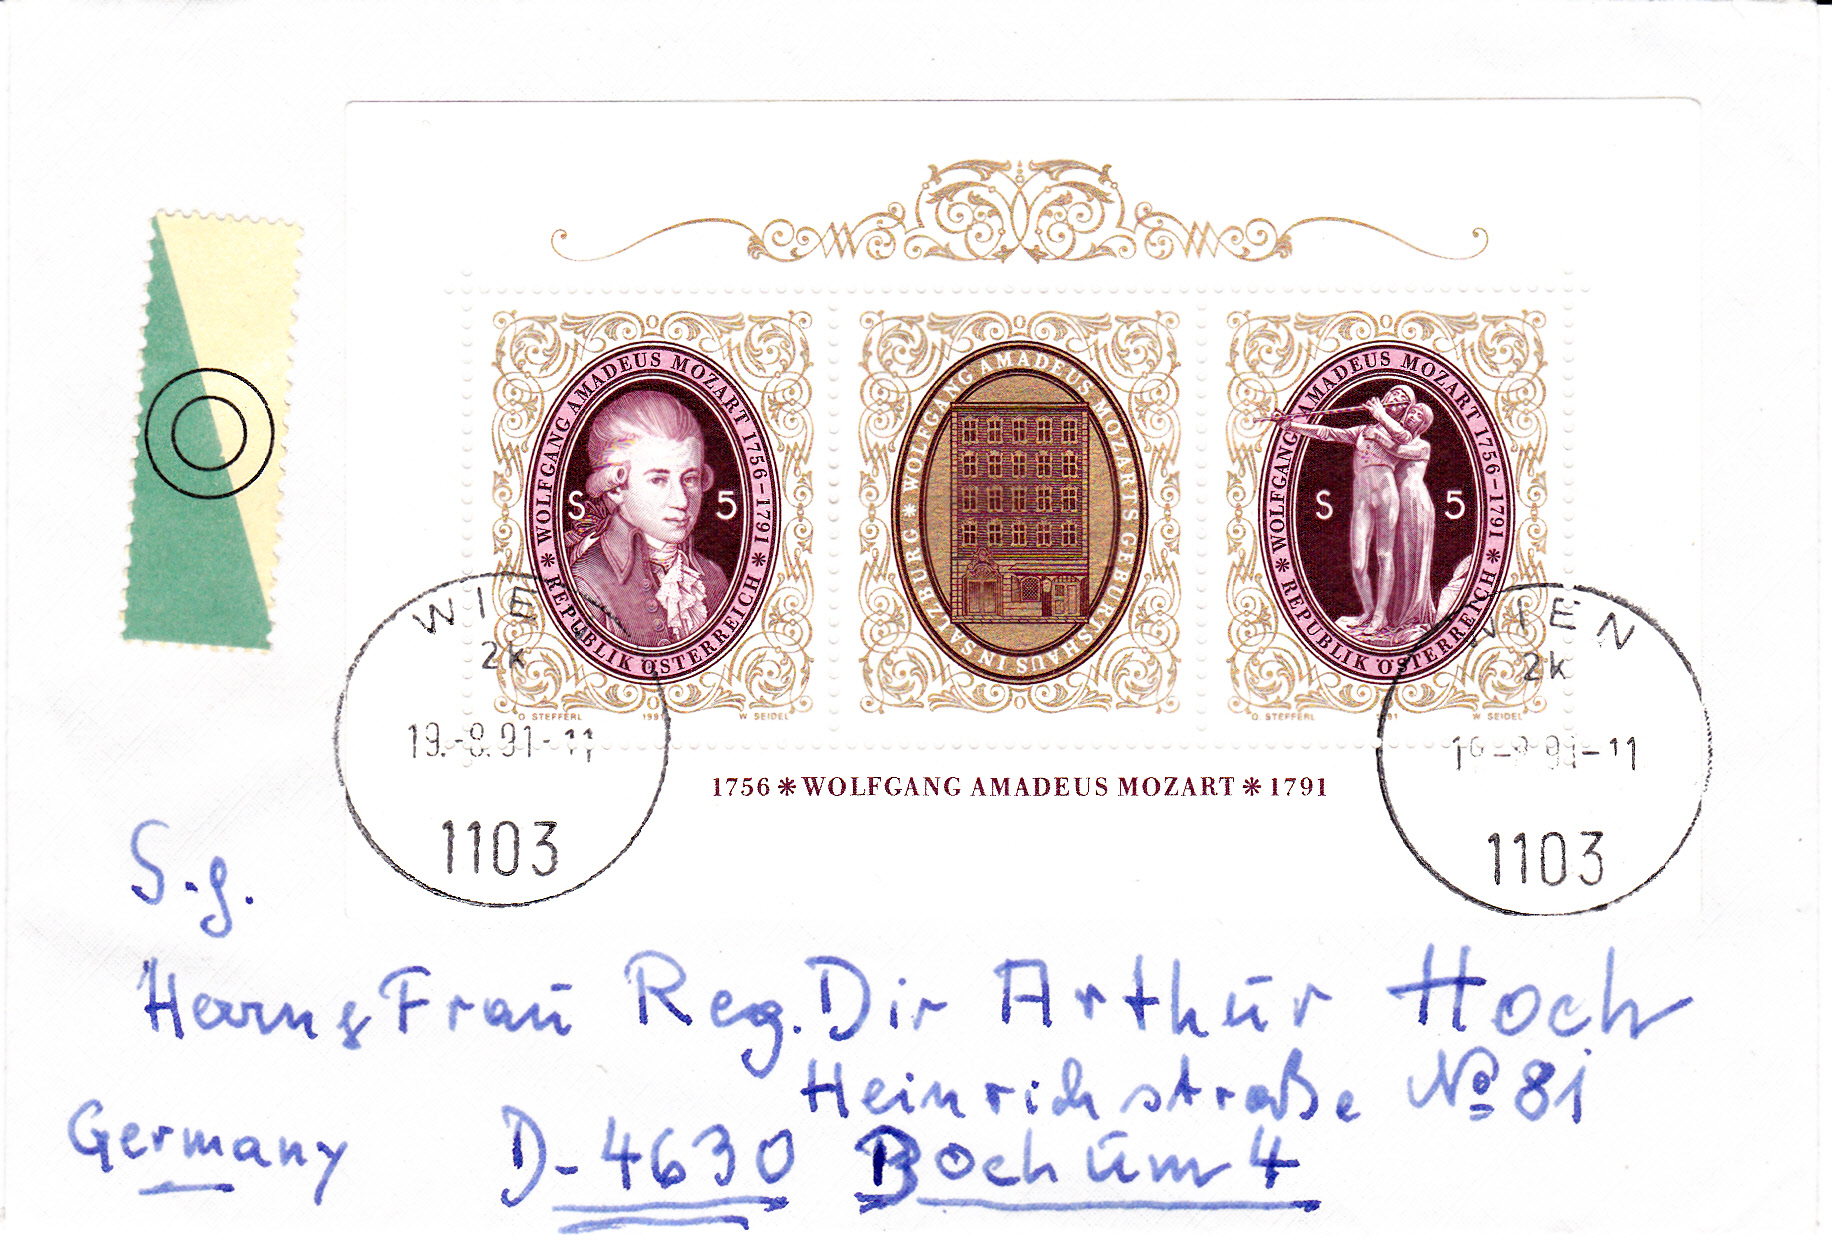 WOLFGANG AMADEUS MOZART 1756-1791 * REPUBLIK ÖSTERREICH *
S 5
O. STEFFERL 1991 W. SEIDEL
WOLFGANG AMADEUS MOZARTS GEBURTSHAUS IN SALZBURG *
WOLFGANG AMADEUS MOZART 1756-1791 * REPUBLIK ÖSTERREICH *
S 5
O. STEFFERL 1991 W. SEIDEL
1756 * WOLFGANG AMADEUS MOZART * 1791
WIE
2k
19.-8.91-11
1103
WIEN
2k
1103
S.g.
Herrn & Frau Reg. Dir Arthur Hoch
Heinrichstraße No 81
Germany D-4630 Bochum 4